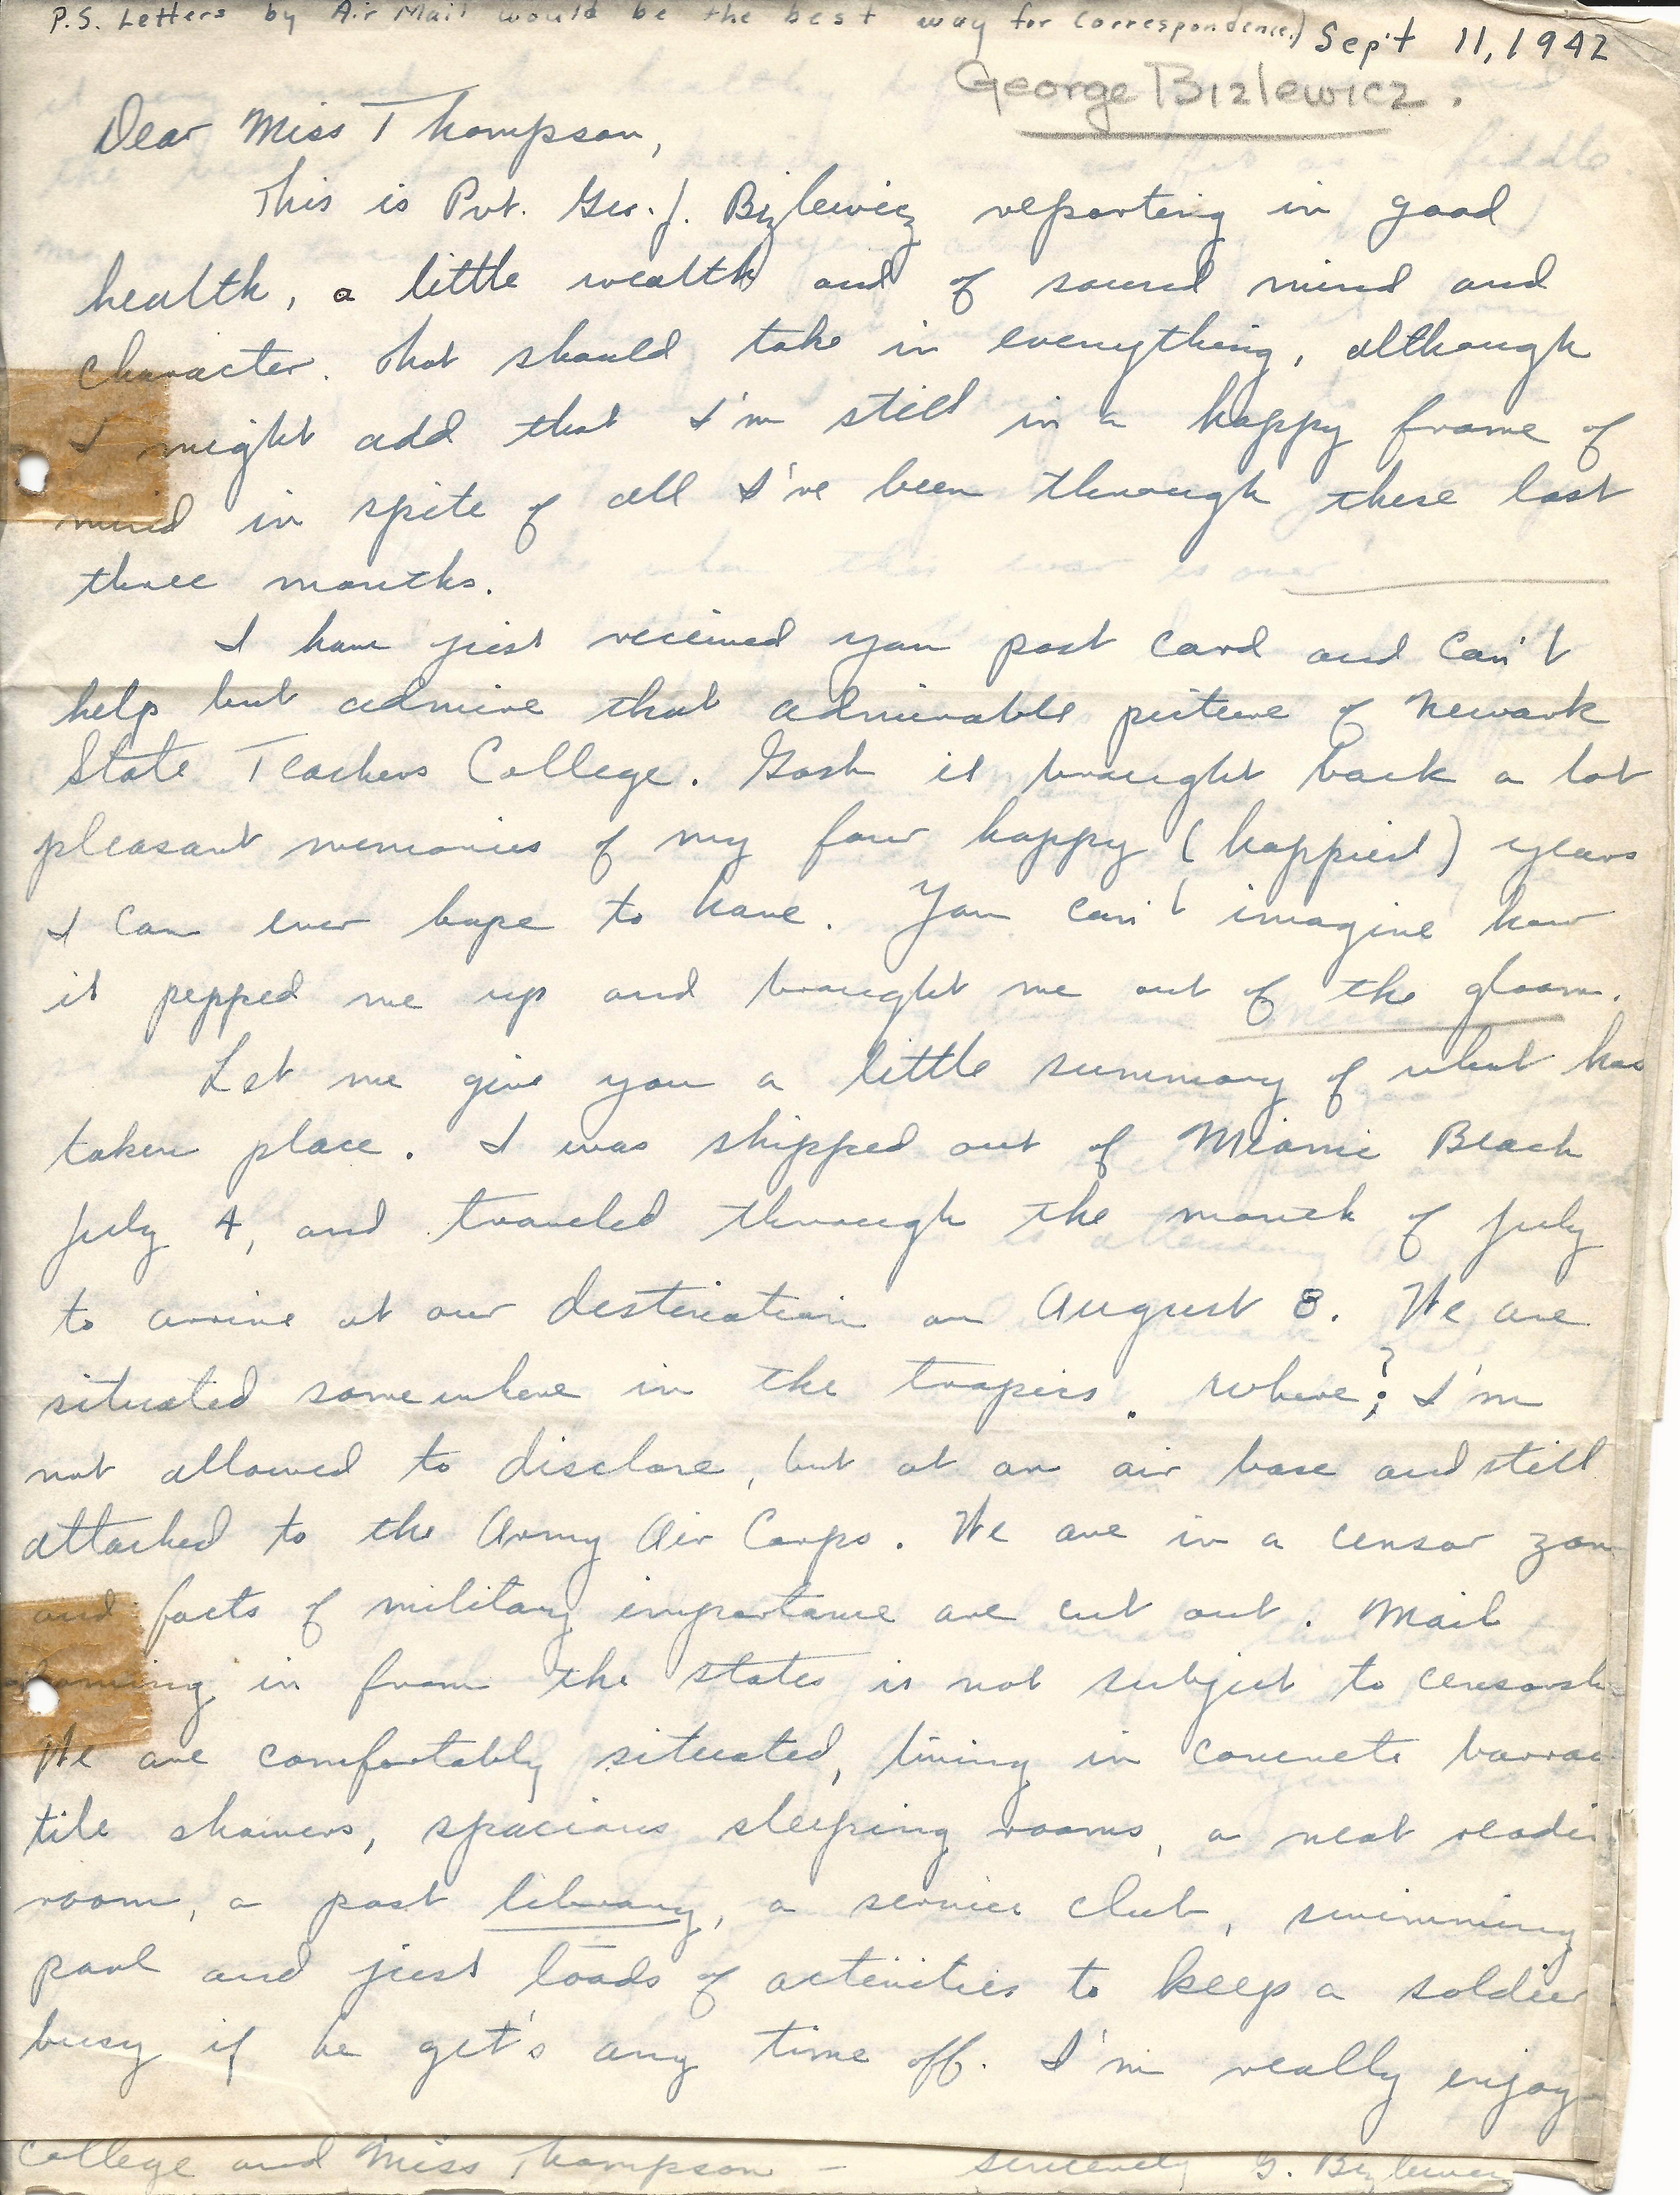 P.S. Letters by Air Mail would be the best way for correspondence.)
Sep't 11, 1942
George Bizlewicz.
Dear Miss Thompson,
This is Pvt. Geo. J. Bizlewicz reporting in good
health, a little wealth and of sound mind and
character. That should take in everything, although
I might add that I'm still in a happy frame of
mind in spite of all I've been through these last
three months.
I have just received your post card and can't
help but admire that admirable picture of Newark
State Teachers College. Gosh it brought back a lot
pleasant memories of my four happy (happiest) years
I can ever hope to have. You can't imagine how
it pepped me up and brought me out of the gloom.
Let me give you a little summary of what has
taken place. I was shipped out of Miami Beach
July 4, and traveled through the month of July
to arrive at our destination on August 3. We are
situated somewhere in the tropics. Where? I'm
not allowed to disclose, but at an air base and still
attached to the Army Air Corps. We are in a censor zon
and facts of military importance are cut out. Mail
coming in from the states is not subject to censorsh
We are comfortably situated, living in concrete barrac
tile showers, spacious sleeping rooms, a neat readi
room, a post library, a service club, swimming
pool and just loads of activities to keep a soldier
busy if he get's any time off. I'm really enjoy
College and Miss Thompson - Sincerely G. Bizlewicz